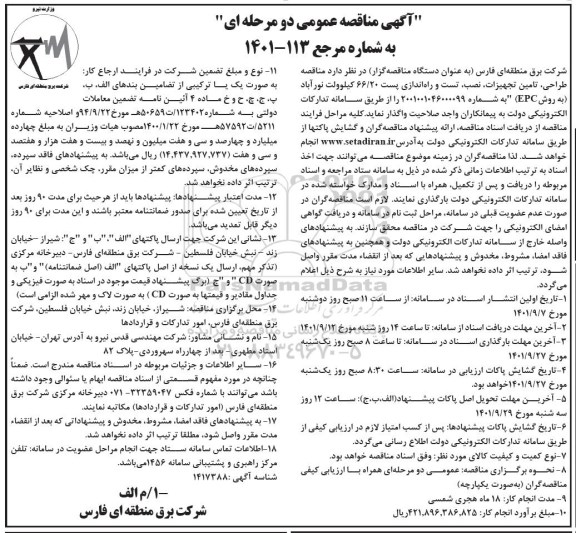 وزارت نیرو
شرکت برق منطقه ای فارس
"آگهی مناقصه عمومی دو مرحله ای"
به شماره مرجع ۱۱۳-۱۴۰۱
شرکت برق منطقه‌ای فارس (به عنوان دستگاه مناقصه‌گزار) در نظر دارد مناقصه
طراحی، تامین تجهیزات، نصب، تست و راه‌اندازی پست ۶۶/۲۰ کیلوولت نورآباد
(به روش EPC) "به شماره ۲۰۰۱۰۰۱۰۴۶۰۰۰۰۹۹ را از طریق سامانه تدارکات
الکترونیکی دولت به پیمانکاران واجد صلاحیت واگذار نماید.کلیه مراحل فرایند
مناقصه از دریافت اسناد مناقصه، ارائه پیشنهاد مناقصه‌گران و گشایش پاکتها از
طریق سامانه تدارکات الکترونیکی دولت به‌آدرس www.setadiran.ir انجام
خواهد شد. لذا مناقصه‌گران در زمینه موضوع مناقصه می‌توانند جهت اخذ
اسناد به ترتیب اطلاعات زمانی ذکر شده در ذیل به سامانه ستاد مراجعه و اسناد
مربوطه را دریافت و پس از تکمیل، همراه با اسناد و مدارک خواسته شده در
سامانه تدارکات الکترونیکی دولت بارگذاری نمایند. لازم است مناقصه‌گران در
صورت عدم عضویت قبلی در سامانه، مراحل ثبت نام در سامانه و دریافت گواهی
امضای الکترونیکی را جهت شرکت در مناقصه محقق سازند. به پیشنهادهای
واصله خارج از سامانه تدارکات الکترونیکی دولت و همچنین به پیشنهادهای
فاقد امضا، مشروط، مخدوش و پیشنهادهایی که بعد از انقضاء مدت مقرر واصل
شود، ترتیب اثر داده نخواهد شد. سایر اطلاعات مورد نیاز به شرح ذیل اعلام
می‌گردد.
۱-تاریخ اولین انتشار اسناد در سامانه: از ساعت ۱۱ صبح روز دوشنبه
مورخ ۱۴۰۱/۹/۷
۲-آخرین مهلت دریافت اسناد از سامانه: تا ساعت ۱۴ روز شنبه مورخ ۱۴۰۱/۹/۱۲
۳-آخرین مهلت بارگذاری اسناد در سامانه: تا ساعت ۸ صبح روز یک‌شنبه
مورخ ۱۴۰۱/۹/۲۷
۴-تاریخ گشایش پاکات ارزیابی در سامانه: ساعت ۸:۳۰ صبح روز یک‌شنبه
مورخ ۱۴۰۱/۹/۲۷خواهد بود.
۵- آخرین مهلت تحویل اصل پاکات پیشنهاد(الف،ب،ج): ساعت ۱۲ روز
سه شنبه مورخ ۱۴۰۱/۹/۲۹
۶-تاریخ گشایش پاکات پیشنهادها: پس از کسب امتیاز لازم در ارزیابی کیفی از
طریق سامانه تدارکات الکترونیکی دولت اطلاع رسانی می‌گردد.
۷-نوع کمیت و کیفیت کالای مورد نظر: وفق اسناد مناقصه خواهد بود.
۸- نحوه برگزاری مناقصه: عمومی دو مرحله‌ای همراه با ارزیابی کیفی
مناقصه‌گران (به‌صورت یکپارچه)
۹- مدت انجام کار: ۱۸ ماه هجری شمسی
۱۰-مبلغ برآورد انجام کار: ۴۲۱,۸۹۶,۳۸۶,۸۲۵ریال
۱۱- نوع و مبلغ تضمین شرکت در فرایند ارجاع کار:
به صورت یک یا ترکیبی از تضامین بندهای الف، ب،
پ، ج، چ، ح و خ ماده ۴ آئین نامه تضمین معاملات
دولتی به شماره ۱۲۳۴۰۲/ت۵۰۶۵۹هـ مورخ ۹۴/۹/۲۲ و اصلاحیه شماره
۵۲۱۱/ت۵۷۵۹۲هـ مورخ ۱۴۰۰/۱/۲۲مصوب هیات وزیران به مبلغ چهارده
میلیارد و چهارصد و سی و هفت میلیون و نهصد و بیست و هفت هزار و هفتصد
و سی و هفت (۱۴,۴۳۷,۹۲۷,۷۳۷) ریال می‌باشد. به پیشنهادهای فاقد سپرده،
سپرده‌های مخدوش، سپرده‌های کمتر از میزان مقرر، چک شخصی و نظایر آن،
ترتیب اثر داده نخواهد شد.
۱۲- مدت اعتبار پیشنهادها: پیشنهادها باید از هر حیث برای مدت ۹۰ روز بعد
از تاریخ تعیین شده برای صدور ضمانتنامه معتبر باشند و این مدت برای ۹۰ روز
دیگر قابل تمدید می‌باشد.
۱۳-نشانی این شرکت جهت ارسال پاکتهای"الف"،"ب" و "ج": شیراز -خیابان
زند - نبش خیابان فلسطین - شرکت برق منطقه‌ای فارس- دبیرخانه مرکزی
(تذکر مهم، ارسال یک نسخه از اصل پاکتهای "الف (اصل ضمانتنامه)" و "ب به
صورت CD " و "ج (برگ پیشنهاد قیمت موجود در اسناد به صورت فیزیکی و
جداول مقادیر و قیمتها به صورت CD ) به صورت لاک و مهر شده الزامی است)
۱۴- محل برگزاری مناقصه: شیراز، خیابان زند، نبش خیابان فلسطین، شرکت
برق منطقه‌ای فارس، امور تدارکات و قراردادها
۱۵- نام و نشانی مشاور: شرکت مهندسی قدس نیرو به آدرس تهران- خیابان
استاد مطهری- بعد از چهارراه سهروردی-پلاک ۸۲
۱۶- سایر اطلاعات و جزئیات مربوطه در اسناد مناقصه مندرج است. ضمناً
چنانچه در مورد مفهوم قسمتی از اسناد مناقصه ابهام یا سئوالی وجود داشته
باشد می‌توانند با شماره فکس ۳۲۳۵۹۰۴۷-۰۷۱ دبیرخانه مرکزی شرکت برق
منطقه‌ای فارس (امور تدارکات و قراردادها) مکاتبه نمایند.
۱۷- به پیشنهادهای فاقد امضا، مشروط، مخدوش و پیشنهاداتی که بعد از انقضاء
مدت مقرر واصل شود، مطلقا ترتیب اثر داده نخواهد شد.
۱۸-اطلاعات تماس سامانه ستاد جهت انجام مراحل عضویت در سامانه: تلفن
مرکز راهبری و پشتیبانی سامانه ۱۴۵۶می‌باشد.
شناسه آگهی :۱۴۱۷۳۸۸
۱۰/م الف
شرکت برق منطقه ای فارس